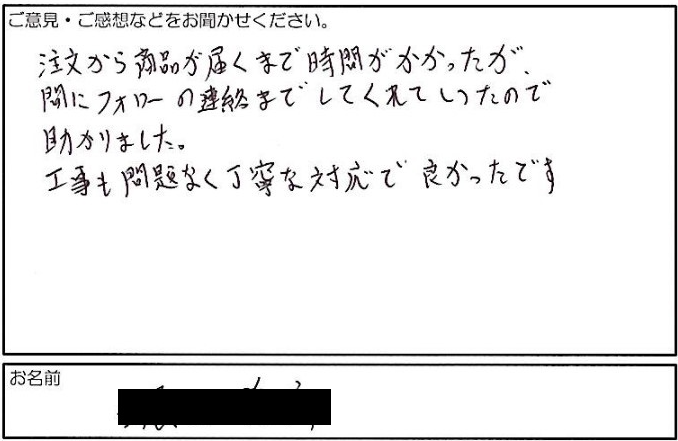 ご意見・ご感想などをお聞かせください。
注文から商品が届くまで時間がかかったが、
間にフォローの連絡までしてくれていたので
助かりました。
工事も問題なく丁寧な対応で良かったです
お名前